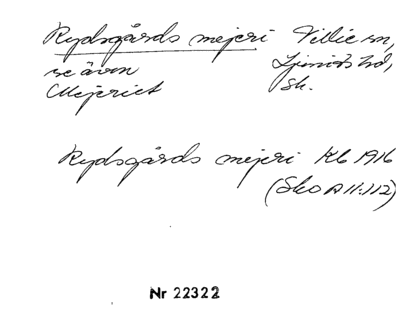 Rydsgårds mejeri Villie sn,
se även Ljunits hd,
Mejeriet Sk.
Rydsgårds mejeri Kb 1916
(Sko A11:112)
Nr 22322